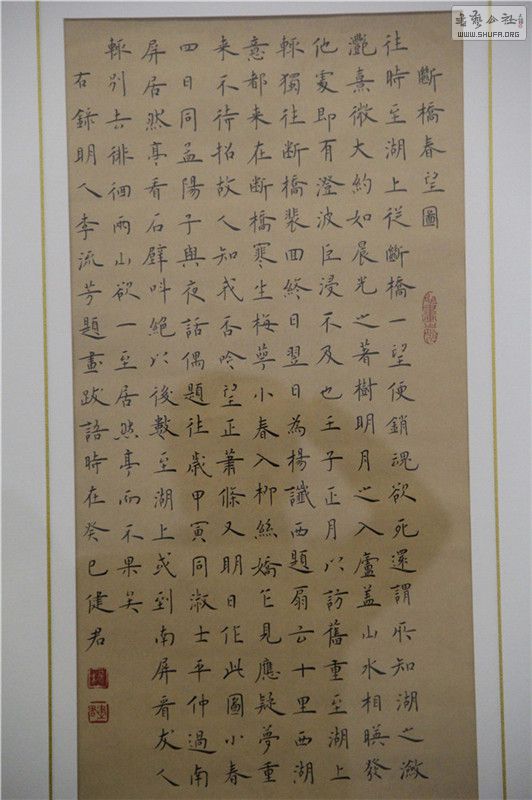 斷橋春望圖
往時至湖上從斷橋一望便銷魂欲死還謂所知湖之瀲
灧熹微大約如晨光之著樹明月之入廬蓋山水相暎發
他處即有澄波巨浸不及也壬子正月以訪舊重至湖上
輒獨往断橋裴回終日翌日為楊讖西題扇云十里西湖
意都来在断橋寒生梅萼小春入柳絲嬌乍見應疑夢重
来不待招故人知我否吟望正蕭條又明日作此圖小春
四日同孟陽子與夜話偶題往歲甲寅同淑士平仲過南
屏居然亭看石壁叫絕以後數至湖上或到南屏看友人
輒別去徘徊兩山欲一至居然亭而不果矣
右錄明人李流芳題畫跋語時在癸巳健君
書藝公社
WWW.SHUFA.ORG